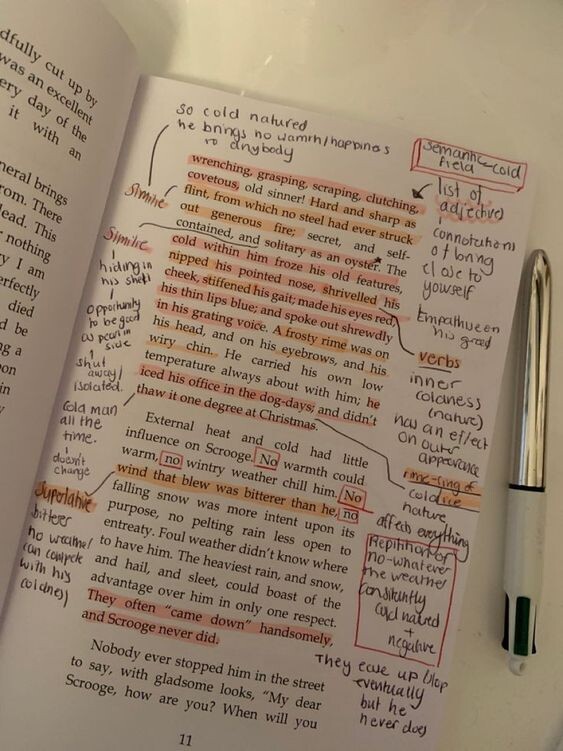 dfully cut up by
was an excellent
ery day of the
it with an
neral brings
rom. There
lead. This
nothing
ry I am
erfectly
died
d be
ng a
on
in
y
So cold natured
he brings no wamrh/happiness
to anybody
Simile
Simile
hiding in
his shell
opportunity
to be good
as pearl in
side
shut
away/
isolated.
Cold man
all the
time.
doesn't
change
Superlative
bitterer
no weather
can compete
with his
coldness
wrenching, grasping, scraping, clutching,
covetous, old sinner! Hard and sharp as
flint, from which no steel had ever struck
out generous fire; secret, and self-
contained, and solitary as an oyster. The
cold within him froze his old features,
nipped his pointed nose, shrivelled his
cheek, stiffened his gait; made his eyes red,
his thin lips blue; and spoke out shrewdly
in his grating voice. A frosty rime was on
his head, and on his eyebrows, and his
wiry chin. He carried his own low
temperature always about with him; he
iced his office in the dog-days; and didn't
thaw it one degree at Christmas.
External heat and cold had little
influence on Scrooge. No warmth could
warm, no wintry weather chill him. No
wind that blew was bitterer than he, no
falling snow was more intent upon its
purpose, no pelting rain less open to
entreaty. Foul weather didn't know where
to have him. The heaviest rain, and snow,
and hail, and sleet, could boast of the
advantage over him in only one respect.
They often "came down" handsomely,
and Scrooge never did.
Nobody ever stopped him in the street
to say, with gladsome looks, "My dear
Scrooge, how are you? When will you
11
semantic-cold
field
list of
adjectives
connotations
of
close to
yourself
on
his greed
verbs
inner
coldness
(nature)
has an effect
on outer
appearance
cold
nature
affects everything
of
no-whatever
the weather
constantly
cold natured
+
negative
They
eventually
but he
never does